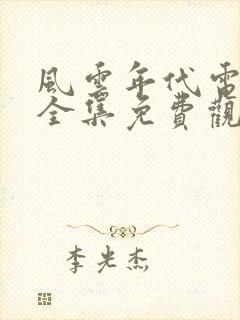 風雲年代電
全集免費觀
李光杰